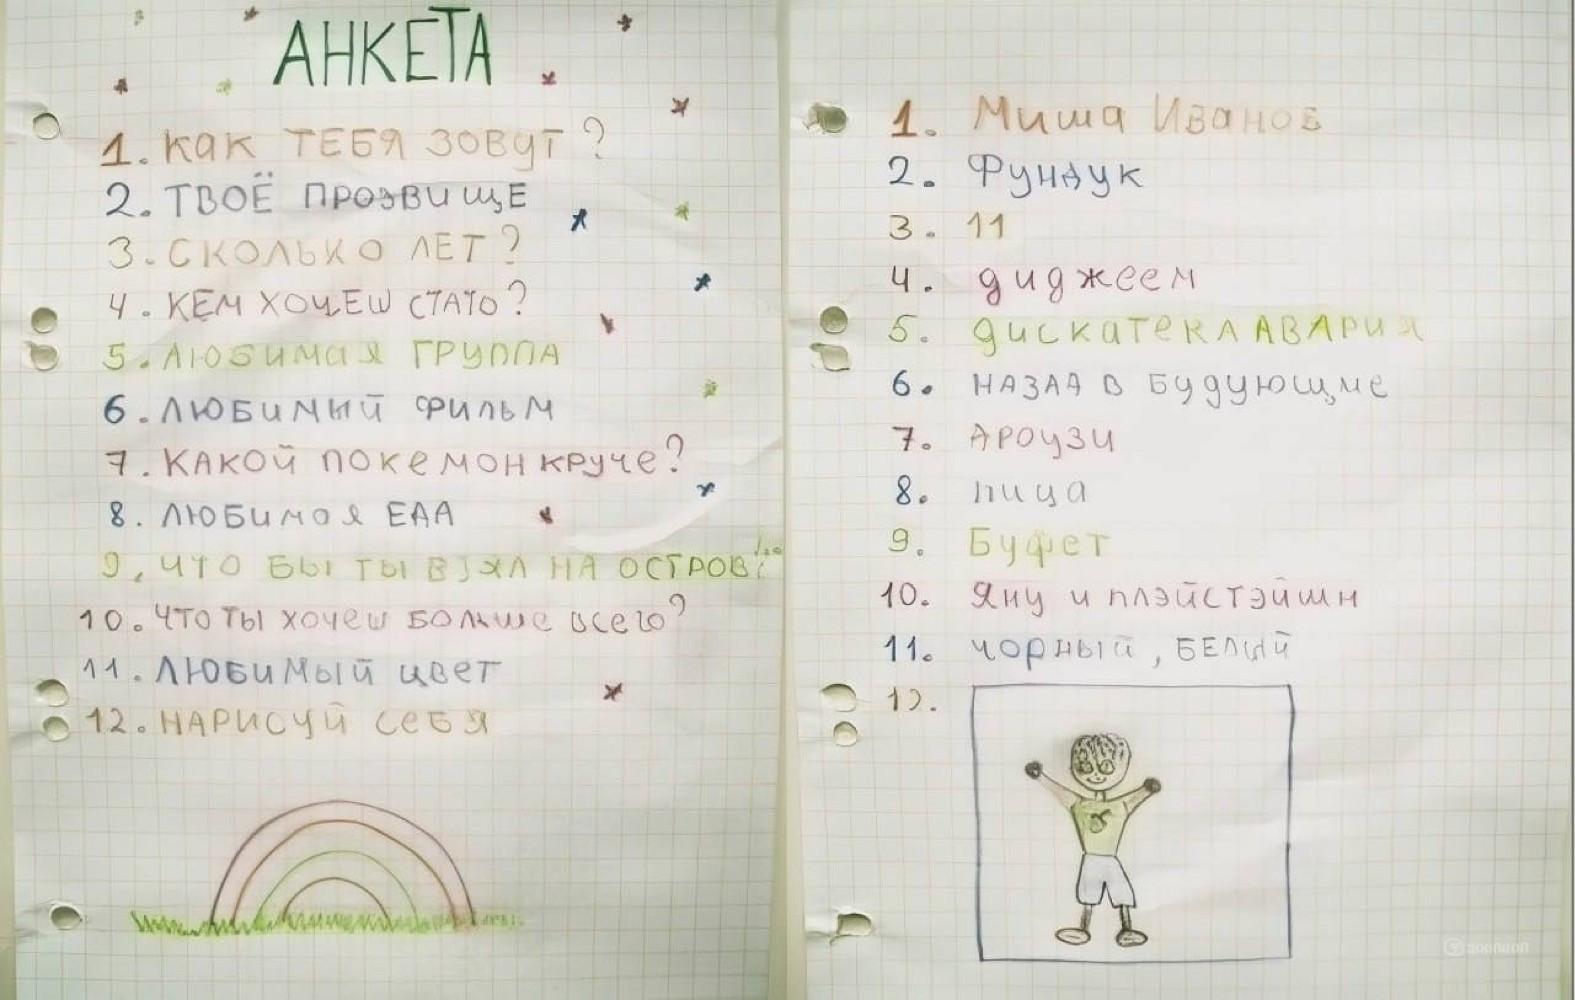 АНКЕТА
1. КАК ТЕБЯ ЗОВУТ?
2. ТВОЁ ПРОЗВИЩЕ
3. СКОЛЬКО ЛЕТ?
4. КЕМ ХОЧЕШ СТАТО?
5. ЛЮБИМАЯ ГРУППА
6. ЛЮБИМЫЙ ФИЛЬМ
7. КАКОЙ ПОКЕМОН КРУЧЕ?
8. ЛЮБИМОЯ ЕДА
9. ЧТО БЫ ТЫ ВЗЯЛ НА ОСТРОВ
10. ЧТО ТЫ ХОЧЕШ БОЛЬШЕ ВСЕГО?
11. ЛЮБИМЫЙ ЦВЕТ
12. НАРИСУЙ СЕБЯ
1. Миша Иванов
2. Фундук
3. 11
4. диджеем
5. дискатека АВАРИЯ
6. НАЗАД В Будующие
7. АРОУЗИ
8. пица
9. Буфет
10. Яну и плэйстэйшн
11. чорный, БЕЛЫЙ
12.